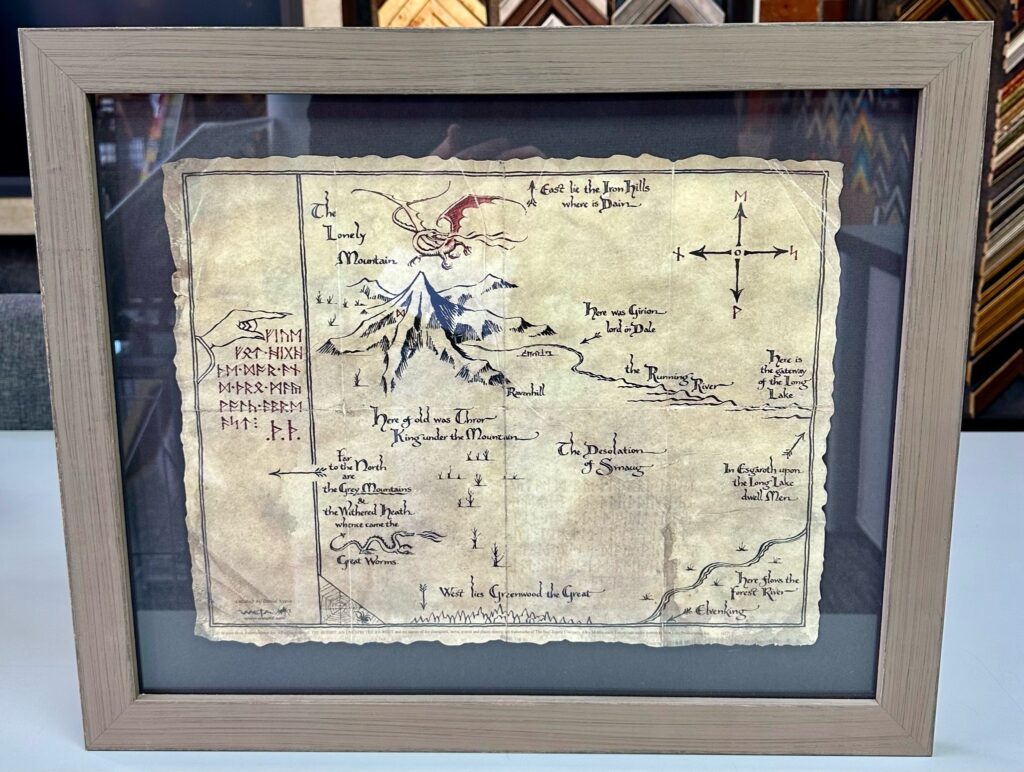 The
Lonely
Mountain
East lie the Iron Hills
where is Dain
ᛖ
ᚾ
ᛋ
ᚹ
ᛞ
Here was Girion
lord in Dale
ᚠᛁᚢᛖ
ᚠᛟᛏ᛫ᚻᛁᚷᚻ
ᚦᛖ᛫ᛞᚩᚱ᛫ᚪᚾ
ᛞ᛫ᚦᚱᛟ᛫ᛗᚪᚣ
ᚹᚪᛚᚳ᛫ᚪᛒᚱᛖ
ᚪᛋᛏ᛬
ᚦ᛫ᚦ᛫
the Running
River
Here is
the gateway
of the Long
Lake
Ravenhill
Here of old was Thror
King under the Mountain
The Desolation
of Smaug
Far
to the North
are
the Grey Mountains
&
the Withered Heath
whence came the
Great Worms
In Esgaroth upon
the Long Lake
dwell Men
West lies Greenwood the Great
Here flows the
Forest River
Elvenking